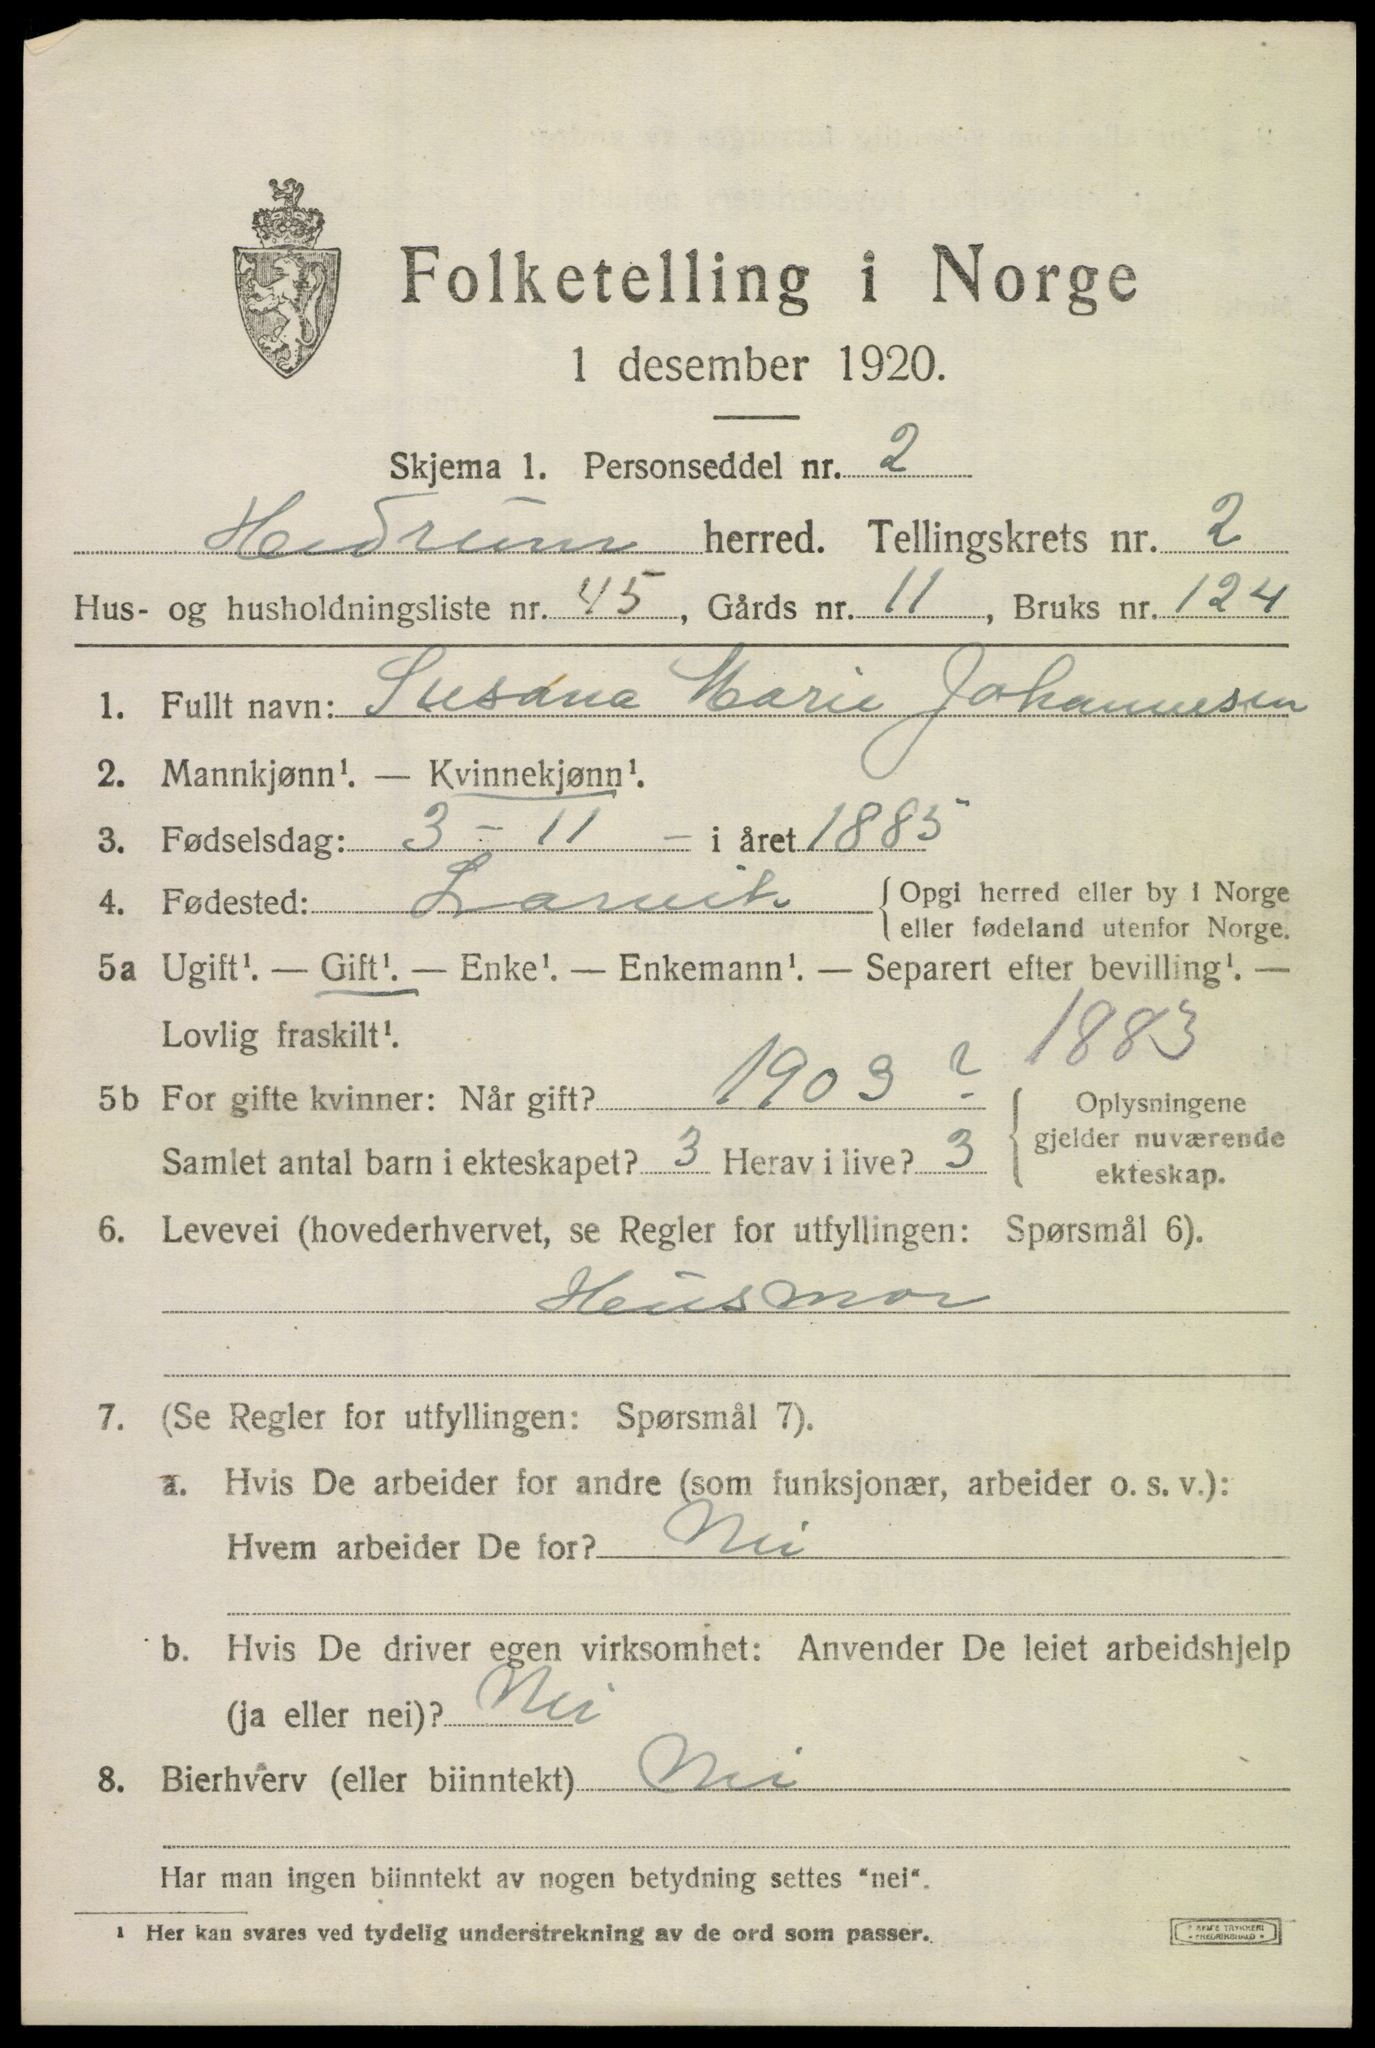 Folketelling i Norge
1 desember 1920.
Skjema 1. Personseddel nr. 2
Hedrum herred. Tellingskrets nr. 2
Hus- og husholdningsliste nr. 45, Gårds nr. 11, Bruks nr. 124
1. Fullt navn: Susana Marie Johannesen
2. Mannkjønn¹. — Kvinnekjønn¹.
3. Fødselsdag: 3 - 11 - i året 1885
4. Fødested: Larvik { Opgi herred eller by i Norge
eller fødeland utenfor Norge.
5a Ugift¹. — Gift¹. — Enke¹. — Enkemann¹. — Separert efter bevilling¹. —
Lovlig fraskilt¹. 1883
5b For gifte kvinner: Når gift? 1903 ? { Oplysningene
gjelder nuværende
ekteskap.
Samlet antal barn i ekteskapet? 3 Herav i live? 3
6. Levevei (hovederhvervet, se Regler for utfyllingen: Spørsmål 6).
Husmor
7. (Se Regler for utfyllingen: Spørsmål 7).
a. Hvis De arbeider for andre (som funksjonær, arbeider o. s. v.):
Hvem arbeider De for? Nei
b. Hvis De driver egen virksomhet: Anvender De leiet arbeidshjelp
(ja eller nei)? Nei
8. Bierhverv (eller biinntekt) Nei
Har man ingen biinntekt av nogen betydning settes "nei".
¹ Her kan svares ved tydelig understrekning av de ord som passer.
TRYKKERI
FREDRIKSHALD